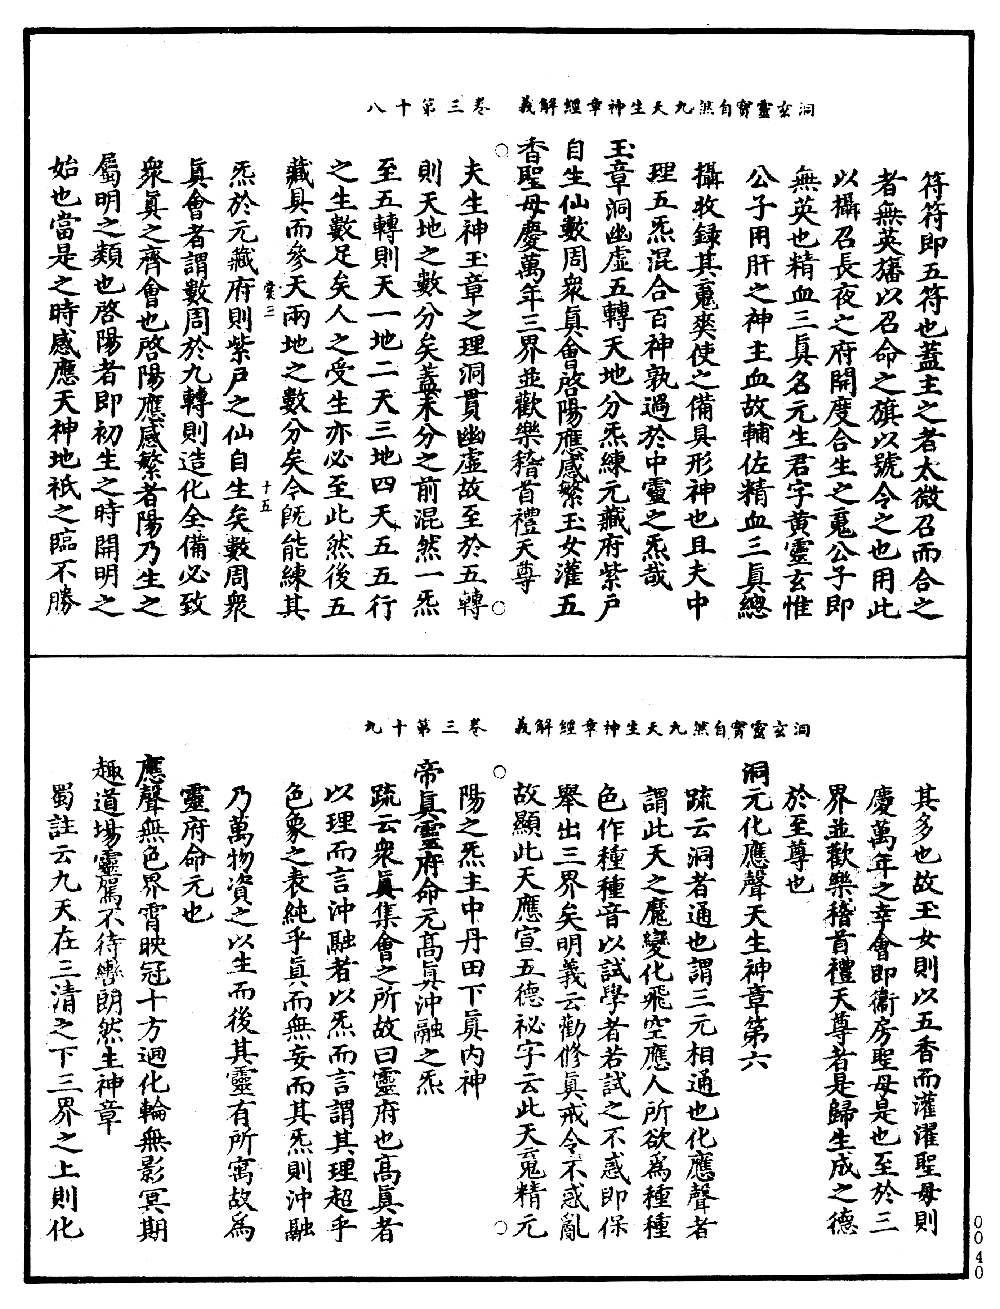 洞玄靈寶自然九天生神章經解義　卷三第十八
符符即五符也蓋主之者太微召而合之
者無英旛以召命之旗以號令之也用此
以攝召長夜之府開度合生之䰟公子即
無英也精血三眞名元生君字黄靈玄惟
公子用肝之神主血故輔佐精血三眞總
攝收録其䰟爽使之備具形神也且夫中
理五炁混合百神孰過於中靈之炁哉
玉章洞幽虛五轉天地分炁練元藏府紫戸
自生仙數周衆眞會啓陽應感繁玉女灌五
香聖母慶萬年三界並歡樂稽首禮天尊
夫生神玉章之理洞貫幽虛故至於五轉
則天地之數分矣蓋未分之前混然一炁
至五轉則天一地二天三地四天五五行
之生數足矣人之受生亦必至此然後五
藏具而參天兩地之數分矣今旣能練其
炁於元藏府則紫戸之仙自生矣數周衆
裳三　十五
眞會者謂數周於九轉則造化全備必致
衆眞之齊會也啓陽應感繁者陽乃生之
屬明之類也啓陽者即初生之時開明之
始也當是之時感應天神地祇之臨不勝
洞玄靈寶自然九天生神章經解義　卷三第十九
其多也故玉女則以五香而灌濯聖母則
慶萬年之幸會即衞房聖母是也至於三
界並歡樂稽首禮天尊者是歸生成之德
於至尊也
洞元化應聲天生神章第六
疏云洞者通也謂三元相通也化應聲者
謂此天之魔變化飛空應人所欲爲種種
色作種種音以試學者若試之不惑即保
舉出三界矣明義云勸修眞戒令不惑亂
故顯此天應宣五德祕字云此天䰟精元
陽之炁主中丹田下眞内神
帝眞靈府命元高眞沖融之炁
疏云衆眞集會之所故曰靈府也高眞者
以理而言沖融者以炁而言謂其理超乎
色象之表純乎眞而無妄而其炁則沖融
乃萬物資之以生而後其靈有所寓故爲
靈府命元也
應聲無色界霄映冠十方迴化輪無影冥期
趣道場靈駕不待轡朗然生神章
蜀註云九天在三清之下三界之上則化
0040